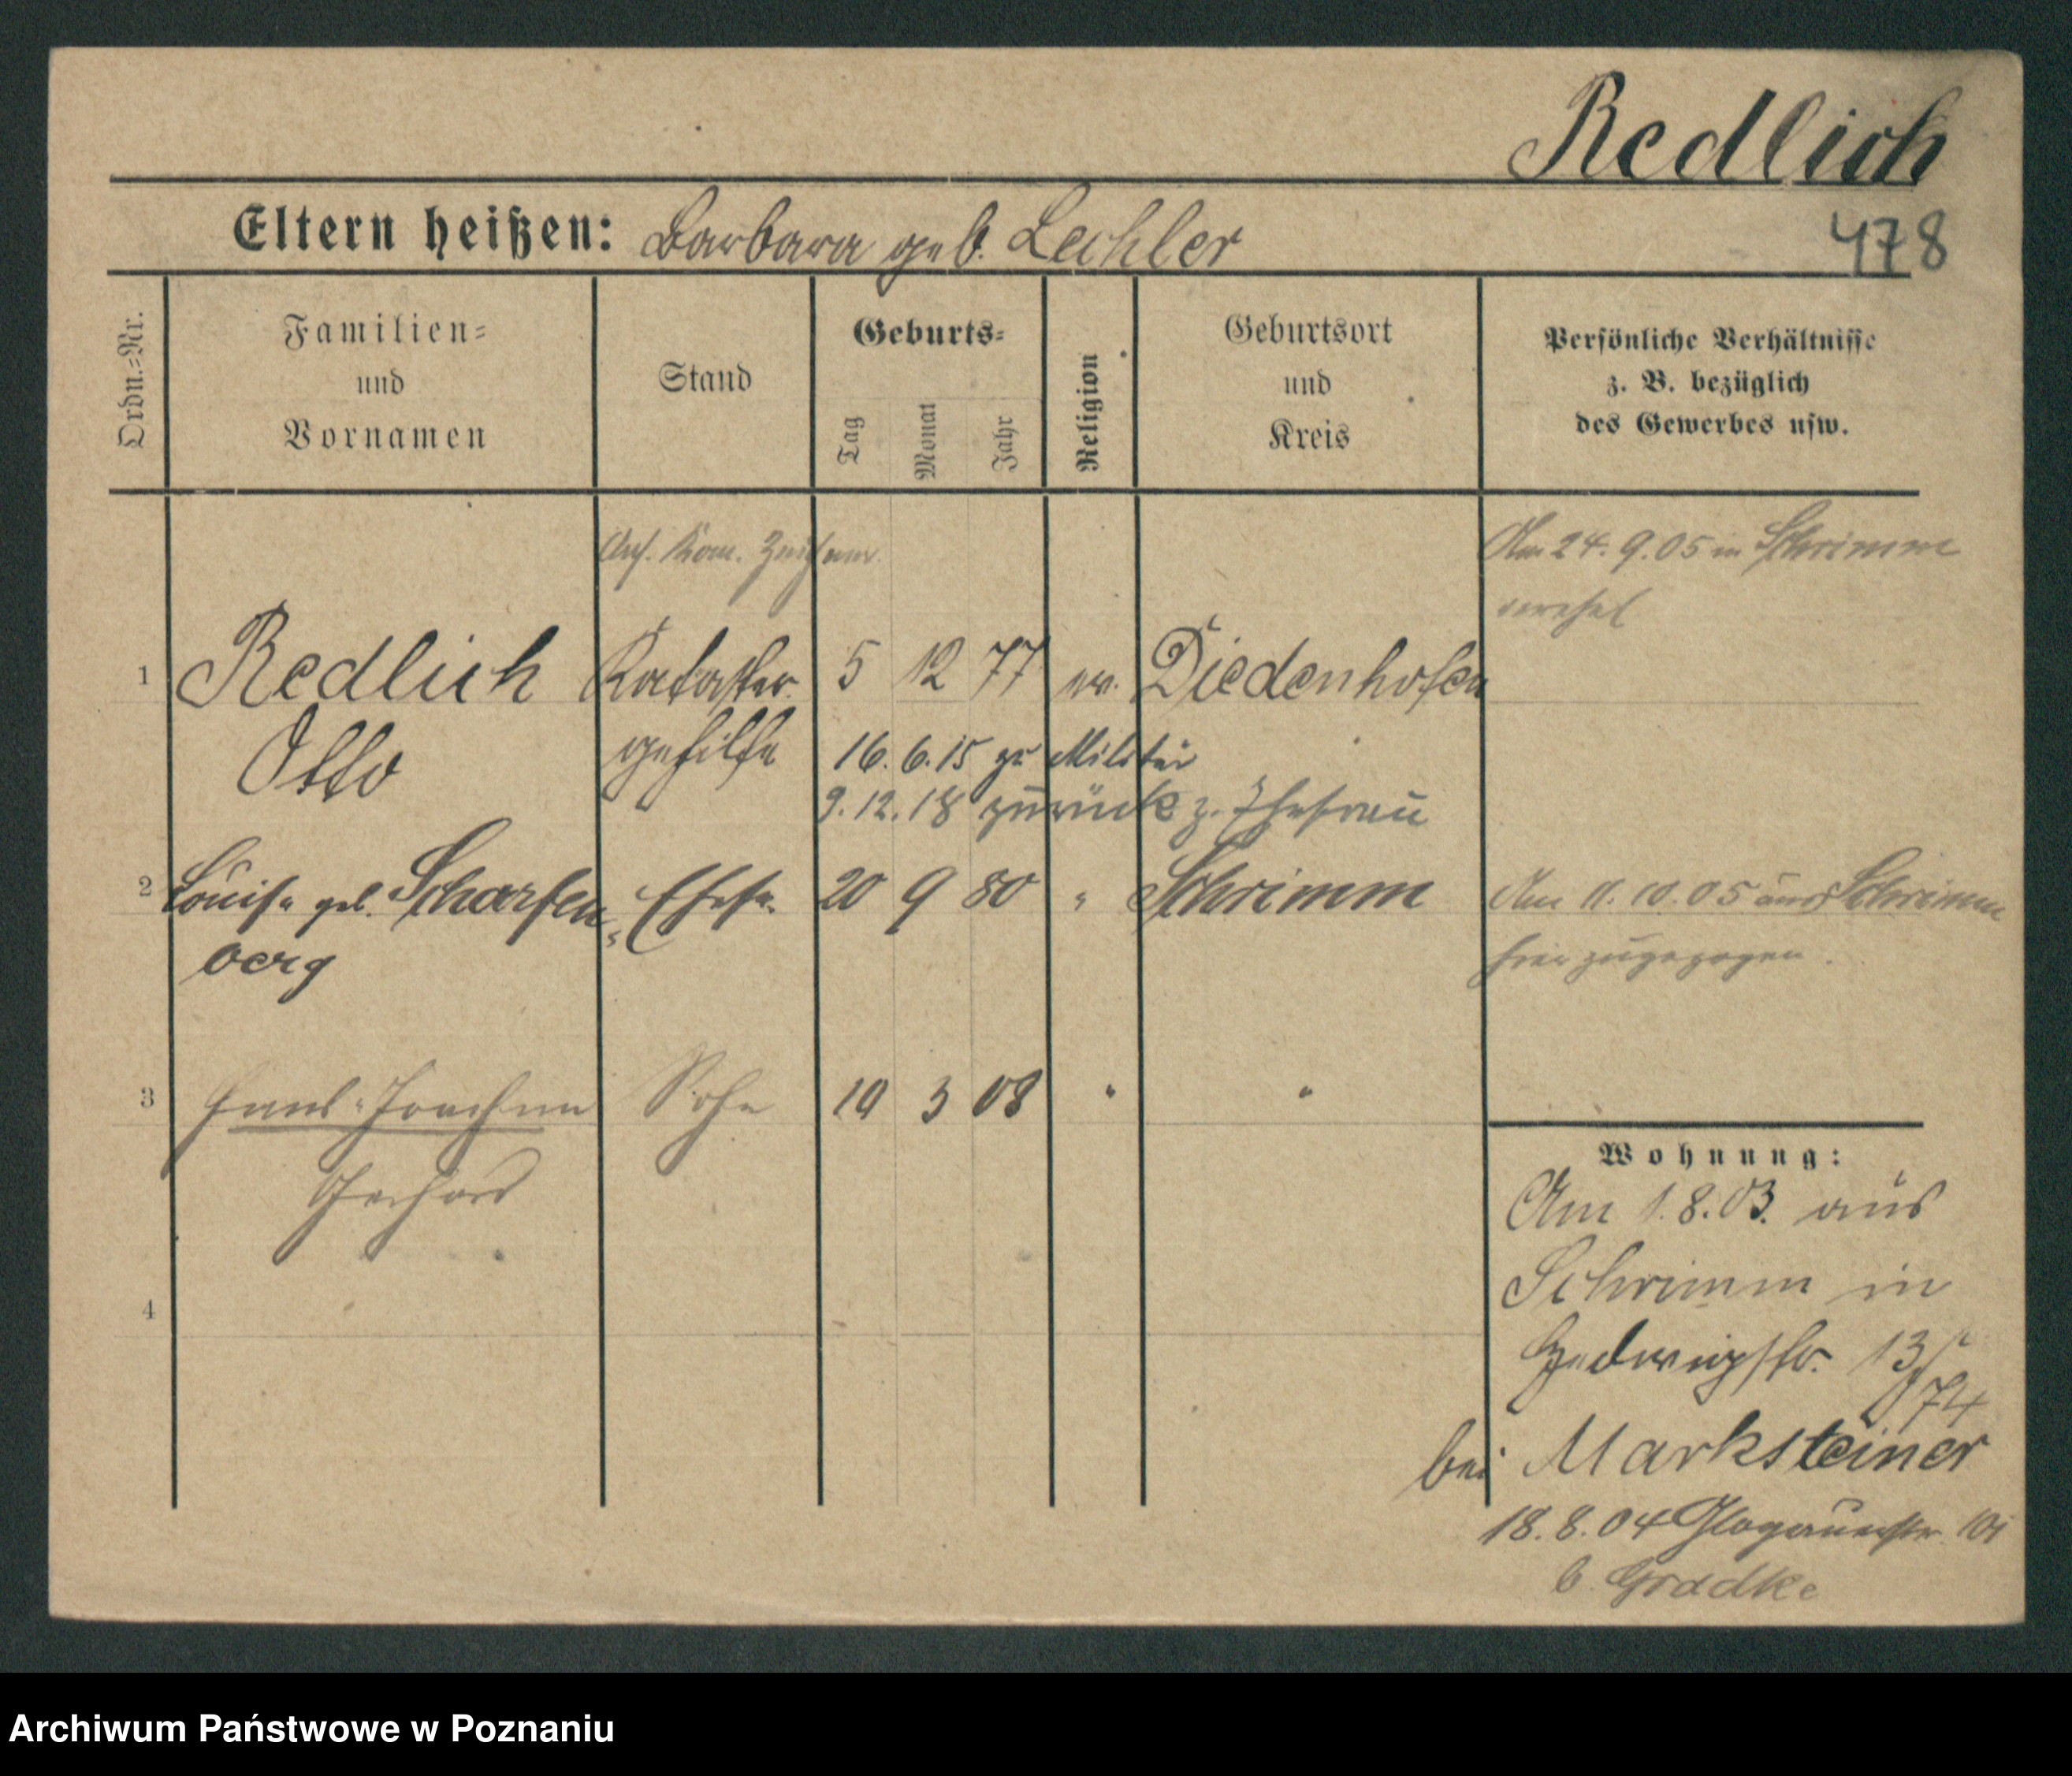 Redlich
Eltern heißen: Barbara geb. Lechler
478
Ordn.=Nr.
Familien=
und
Vornamen
Stand
Geburts=
Tag
Monat
Jahr
Religion
Geburtsort
und
Kreis
Persönliche Verhältnisse
z. B. bezüglich
des Gewerbes usw.
Ans. Kom. Zeichner.
Am 24. 9. 05 in Schrimm
verehel
1 Redlich Kataster 5 12 77 ev. Diedenhofen
Otto gehilfe
16. 6. 15 zu Militär
9. 12. 18 zurück z. Ehefrau
2 Louise geb. Scharfen= Ehefr. 20 9 80 " Schrimm
berg
Am 11. 10. 05 aus Schrimm
hier zugezogen.
3 Hans=Joachim Sohn 19 3 08 " "
Gerhard
4
Wohnung:
Am 1. 8. 03. aus
Schrimm in
Hedwigstr. 13
74
bei Marksteiner
18. 8. 04 Glogauerstr.
b. Gradtke